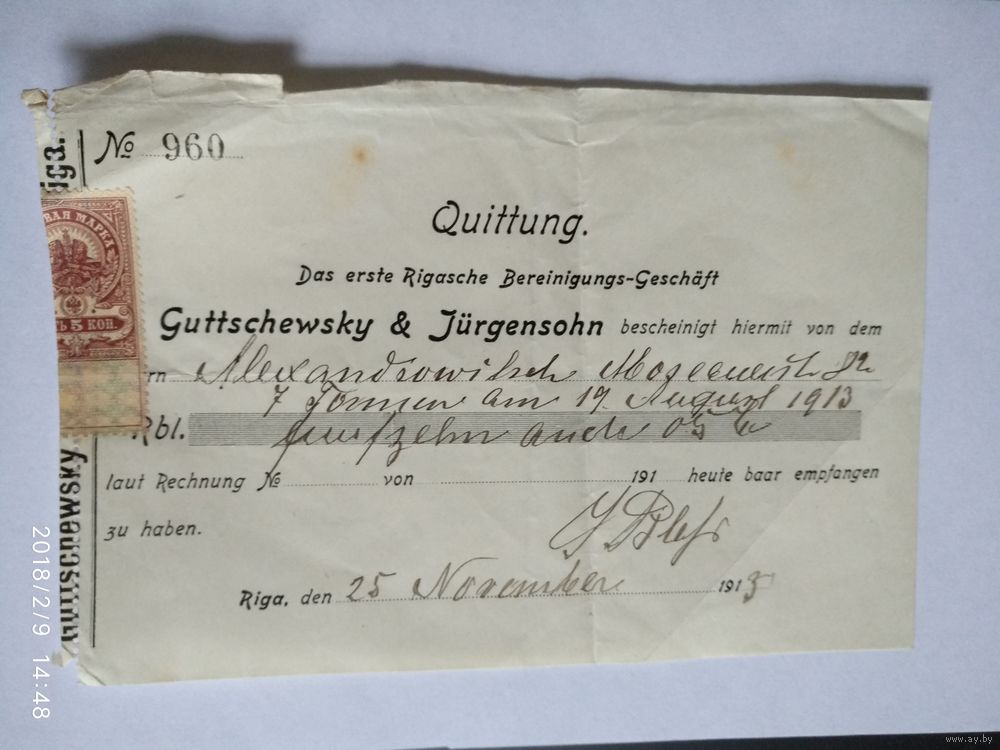 № 960
Quittung.
Das erste Rigasche Bereinigungs-Geschäft
Guttschewsky & Jürgensohn bescheinigt hiermit von dem
rn Alexandrowitsch
7 Tonnen am 19 August 1913
Rbl. fünfzehn
laut Rechnung № von 191 heute baar empfangen
zu haben.
Riga, den 25 November 1913
iga.
Guttschewsky
ВАЯ МАРКА
ТЬ 5 КОП.
2018/2/9 14:48
www.ay.by